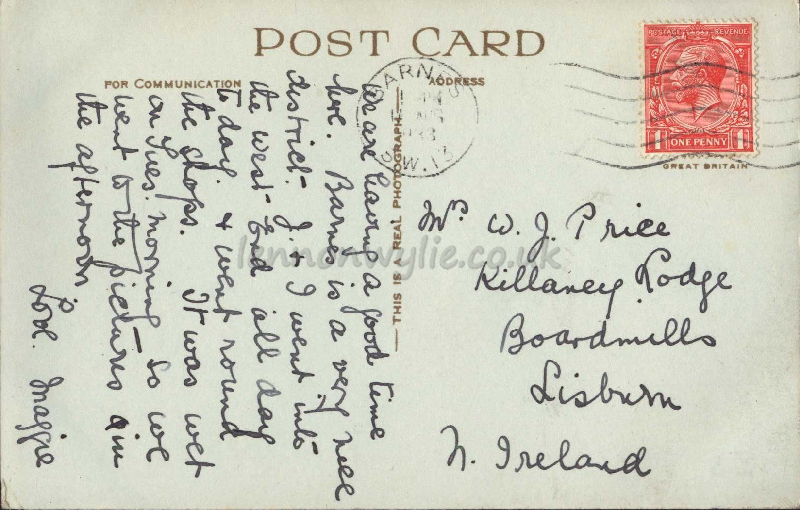 POST CARD
FOR COMMUNICATION
ADDRESS
THIS IS A REAL PHOTOGRAPH
BARNES
S.W.13
POSTAGE REVENUE
ONE PENNY
GREAT BRITAIN
We are having a good time
here. Barnes is a very nice
district. J. & I went into
the West End all day
today & went round
the shops. It was wet
on Tues. morning so we
went to the pictures in
the afternoon.
Love. Maggie
Mrs W. J. Price
Killaney Lodge
Boardmills
Lisburn
N. Ireland
lennonwylie.co.uk